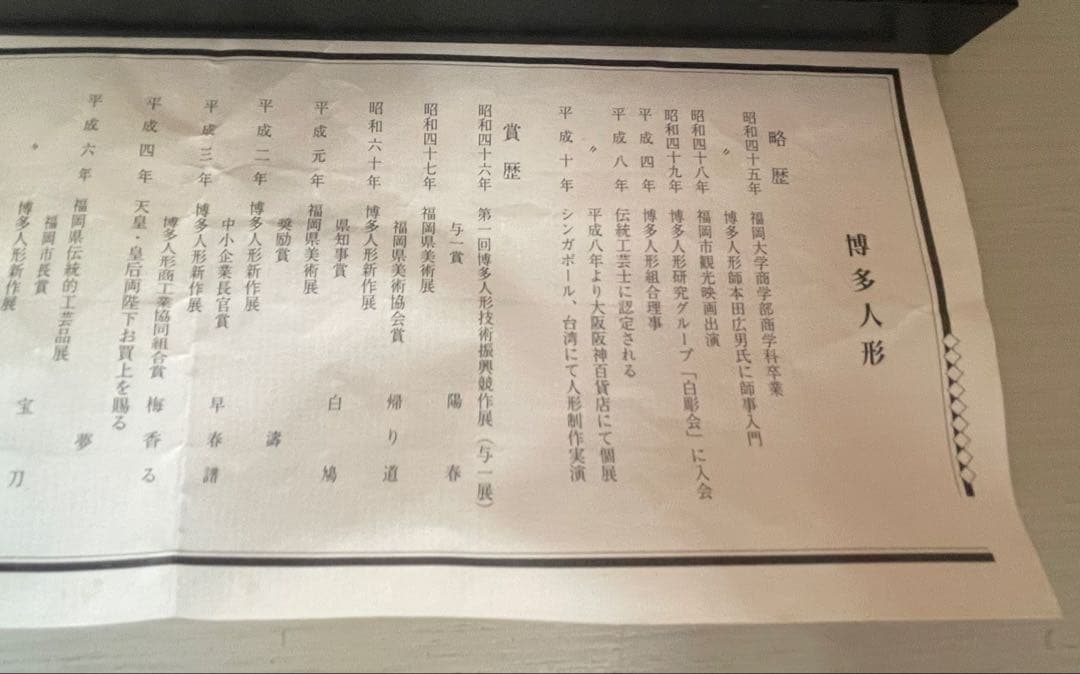 博多人形
略歴
昭和四十五年 福岡大学商学部商学科卒業
〃 博多人形師本田広男氏に師事入門
昭和四十八年 福岡市観光映画出演
昭和四十九年 博多人形研究グループ「白彫会」に入会
平成四年 博多人形組合理事
平成八年 伝統工芸士に認定される
〃 平成八年より大阪阪神百貨店にて個展
平成十年 シンガポール、台湾にて人形制作実演
賞歴
昭和四十六年 第一回博多人形技術振興競作展(与一展)
与一賞 陽春
昭和四十七年 福岡県美術展
福岡県美術協会賞 帰り道
昭和六十年 博多人形新作展
県知事賞 白鳩
平成元年 福岡県美術展
奨励賞 濤
平成二年 博多人形新作展
中小企業長官賞 早春譜
平成三年 博多人形新作展
博多人形商工業協同組合賞 梅香る
平成四年 天皇・皇后両陛下お買上を賜る
平成六年 福岡県伝統的工芸品展
福岡市長賞 夢
〃 博多人形新作展
宝刀